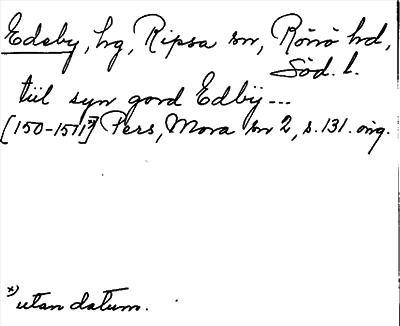 Edeby, hg, Ripsa sn, Rönö hd,
Söd. l.
tiil syn gord Edbÿ ---
[150-1511]*) Pers, Mora sn 2, s. 131. orig.
*) utan datum.